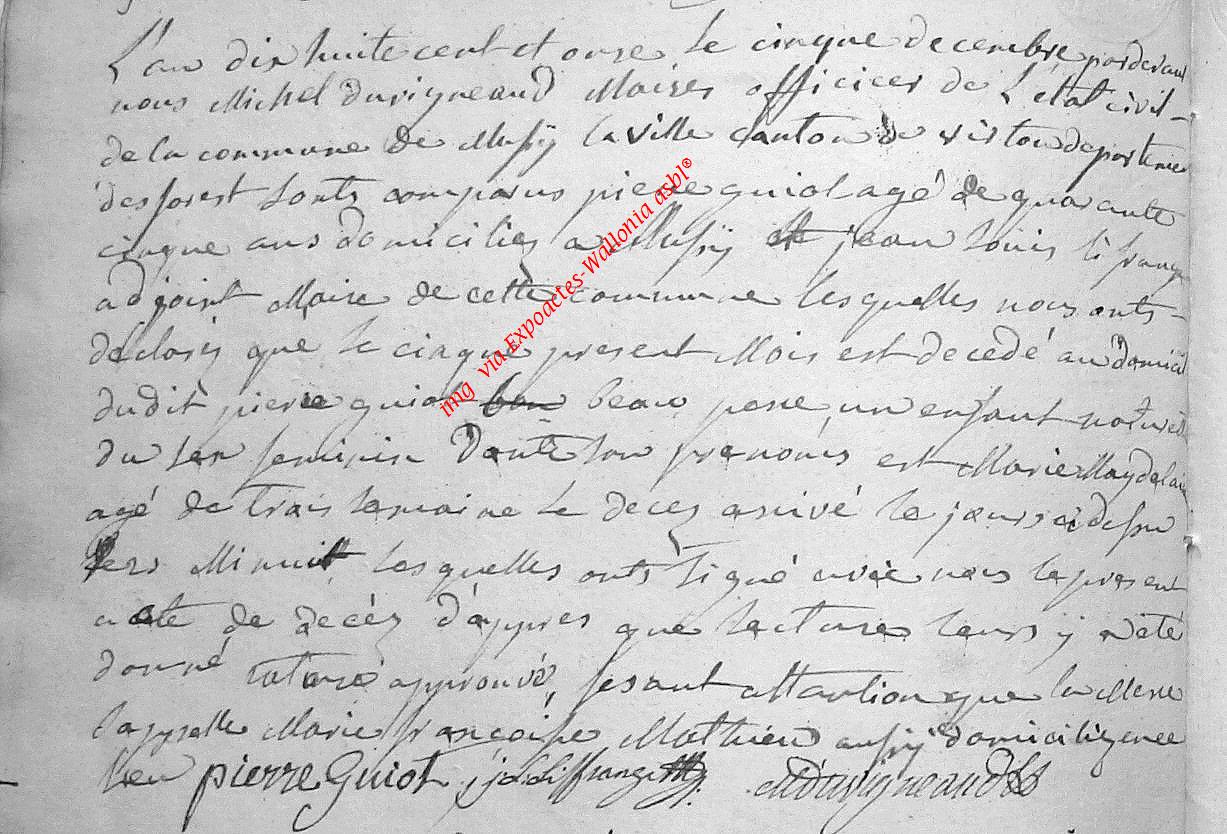 L'an dix huite cent et onze le cinque decembre pardevant
nous Michel Duvigneaud Maires officier de L'état civil -
de la commune de Mussÿ la ville canton de virton departemen
des forest sonts comparus pierre guiot agé de quarante
cinque ans domiciliez a Mussÿ et jean Louis lifrange
adjoint Maire de cette commune lesquelles nous onts -
déclarés que le cinque present Mois est decedé au domicil
dudit pierre guiot beau pere, un enfant naturel
du sex feminin Donte son prenoms est Marie Magdelaine
agé de trois semaine le deces arrivé le jours ci dessu
vers Minuit lesquelles onts signé avec nous le present
acte de décéz d'appres que lectures leurs y a été
donné rature approuvé, fesant attantion que la Mere
sappelle Marie françoise Mathieu aussÿ domiciliez
lieu pierre Guiot, j: L: Liffrange MDuvigneaud
img via Expoactes-Wallonia asbl®